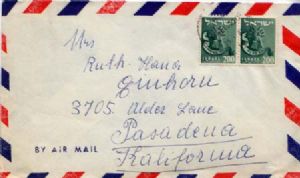 Mrs
Ruth-Hanna
Einhorn
3705 Alder Lane
Pasadena
Kalifornia
BY AIR MAIL
ישראל
ISRAEL 200
ישראל
ISRAEL 200